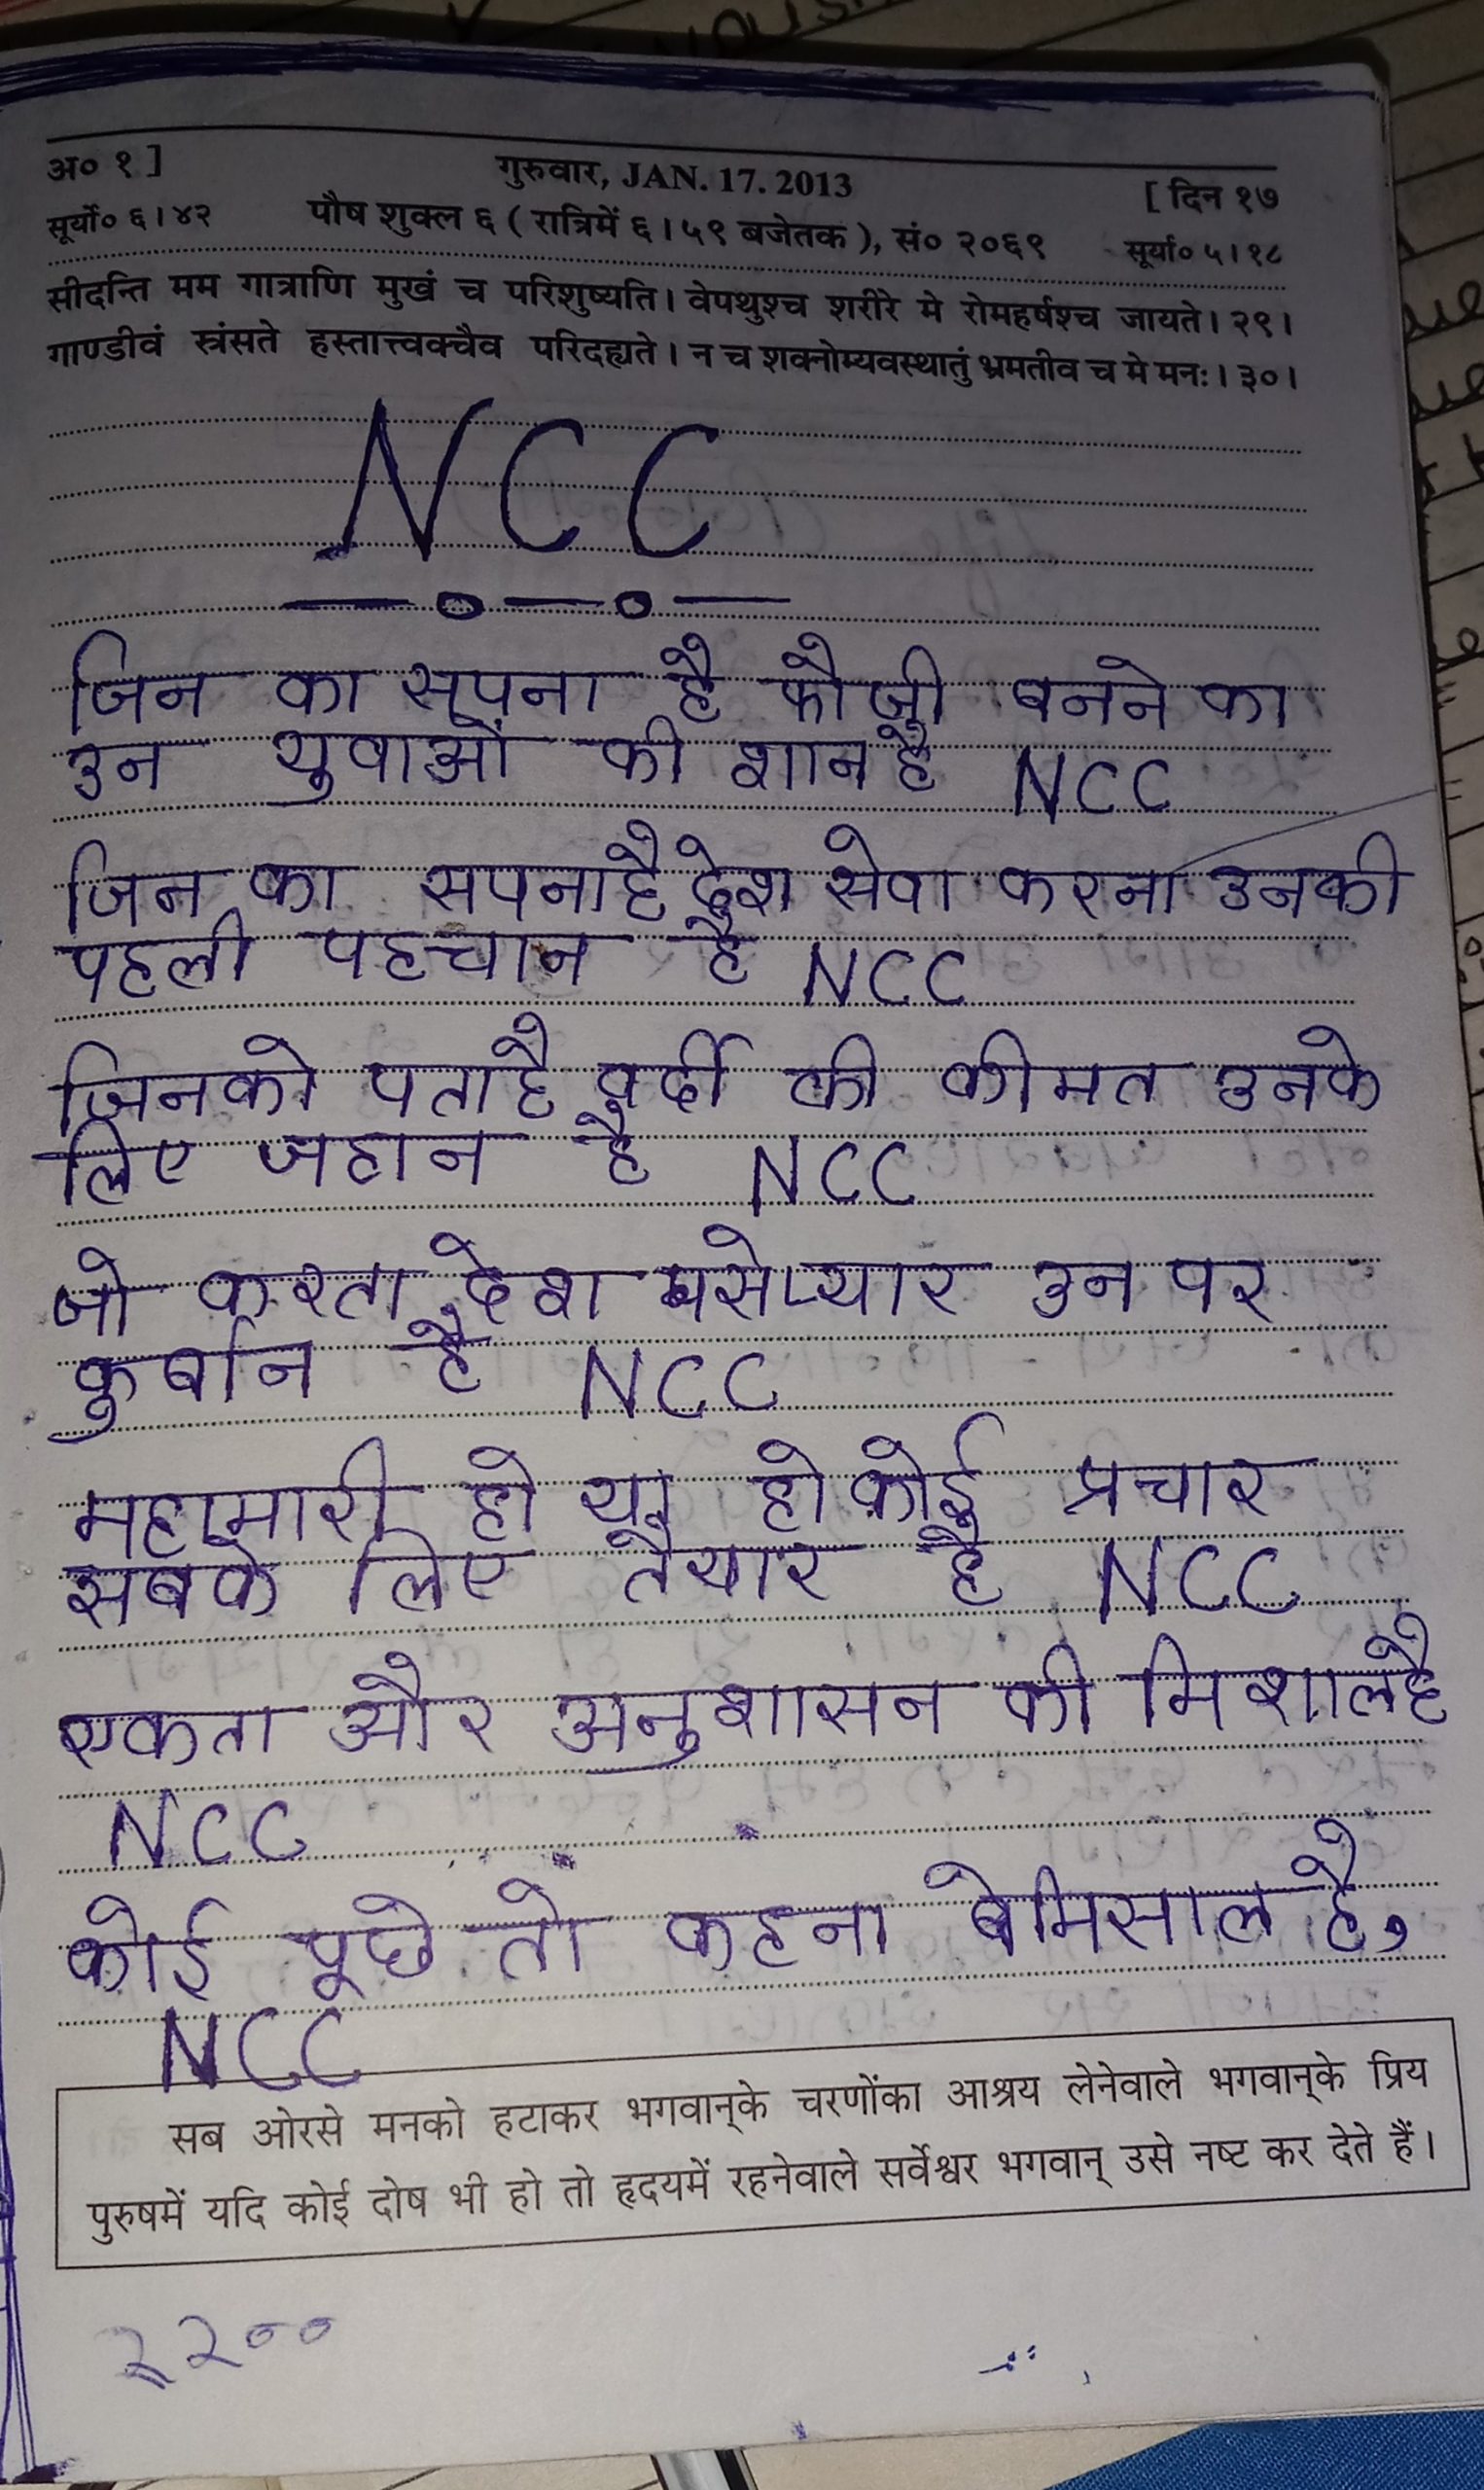 अ० १ ] गुरुवार, JAN. 17. 2013 [ दिन १७
सूर्यो० ६।४२ पौष शुक्ल ६ ( रात्रिमें ६।५९ बजेतक ), सं० २०६९ सूर्या० ५।१८
सीदन्ति मम गात्राणि मुखं च परिशुष्यति। वेपथुश्च शरीरे मे रोमहर्षश्च जायते। २९।
गाण्डीवं स्त्रंसते हस्तात्त्वक्चैव परिदह्यते। न च शक्नोम्यवस्थातुं भ्रमतीव च मे मनः। ३०।
NCC
जिन का सपना है फौजी बनने का
उन युवाओं की शान है NCC
जिन का सपना है देश सेवा करना उनकी
पहली पहचान है NCC
जिनको पता है वर्दी की कीमत उनके
लिए जहान है NCC
जो करता देश से प्यार उन पर
कुर्बान है NCC
महामारी हो या हो कोई प्रचार
सबके लिए तैयार है NCC
एकता और अनुशासन की मिशाल है
NCC
कोई पूछे तो कहना बेमिसाल है,
NCC
सब ओरसे मनको हटाकर भगवान्‌के चरणोंका आश्रय लेनेवाले भगवान्‌के प्रिय
पुरुषमें यदि कोई दोष भी हो तो हृदयमें रहनेवाले सर्वेश्वर भगवान् उसे नष्ट कर देते हैं।